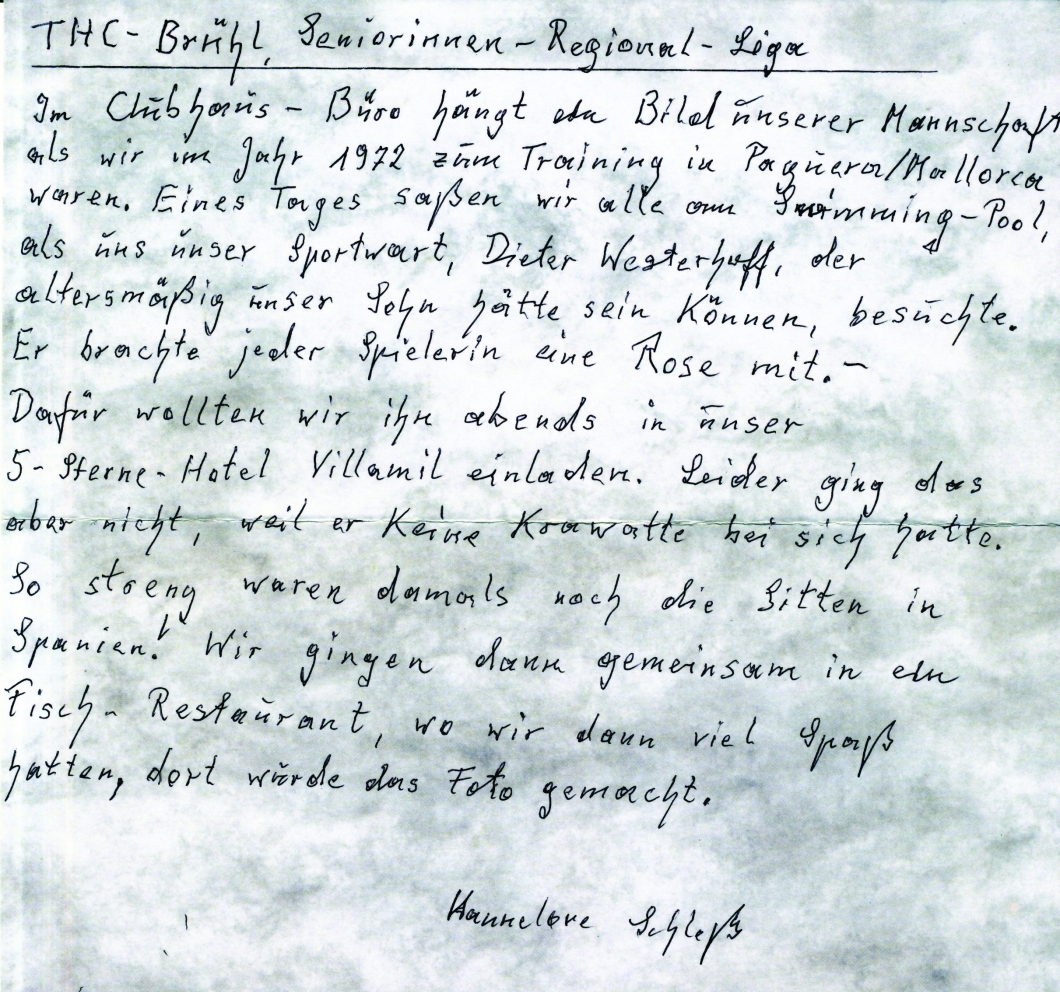 THC-Brühl, Seniorinnen-Regional-Liga
Im Clubhaus-Büro hängt ein Bild unserer Mannschaft
als wir im Jahr 1972 zum Training in Paguera/Mallorca
waren. Eines Tages saßen wir alle am Swimming-Pool,
als uns unser Sportwart, Dieter Westerhoff, der
altersmäßig unser Sohn hätte sein können, besuchte.
Er brachte jeder Spielerin eine Rose mit.-
Dafür wollten wir ihn abends in unser
5-Sterne-Hotel Villamil einladen. Leider ging das
aber nicht, weil er keine Krawatte bei sich hatte.
So streng waren damals noch die Sitten in
Spanien! Wir gingen dann gemeinsam in ein
Fisch-Restaurant, wo wir dann viel Spaß
hatten, dort wurde das Foto gemacht.
Hannelore